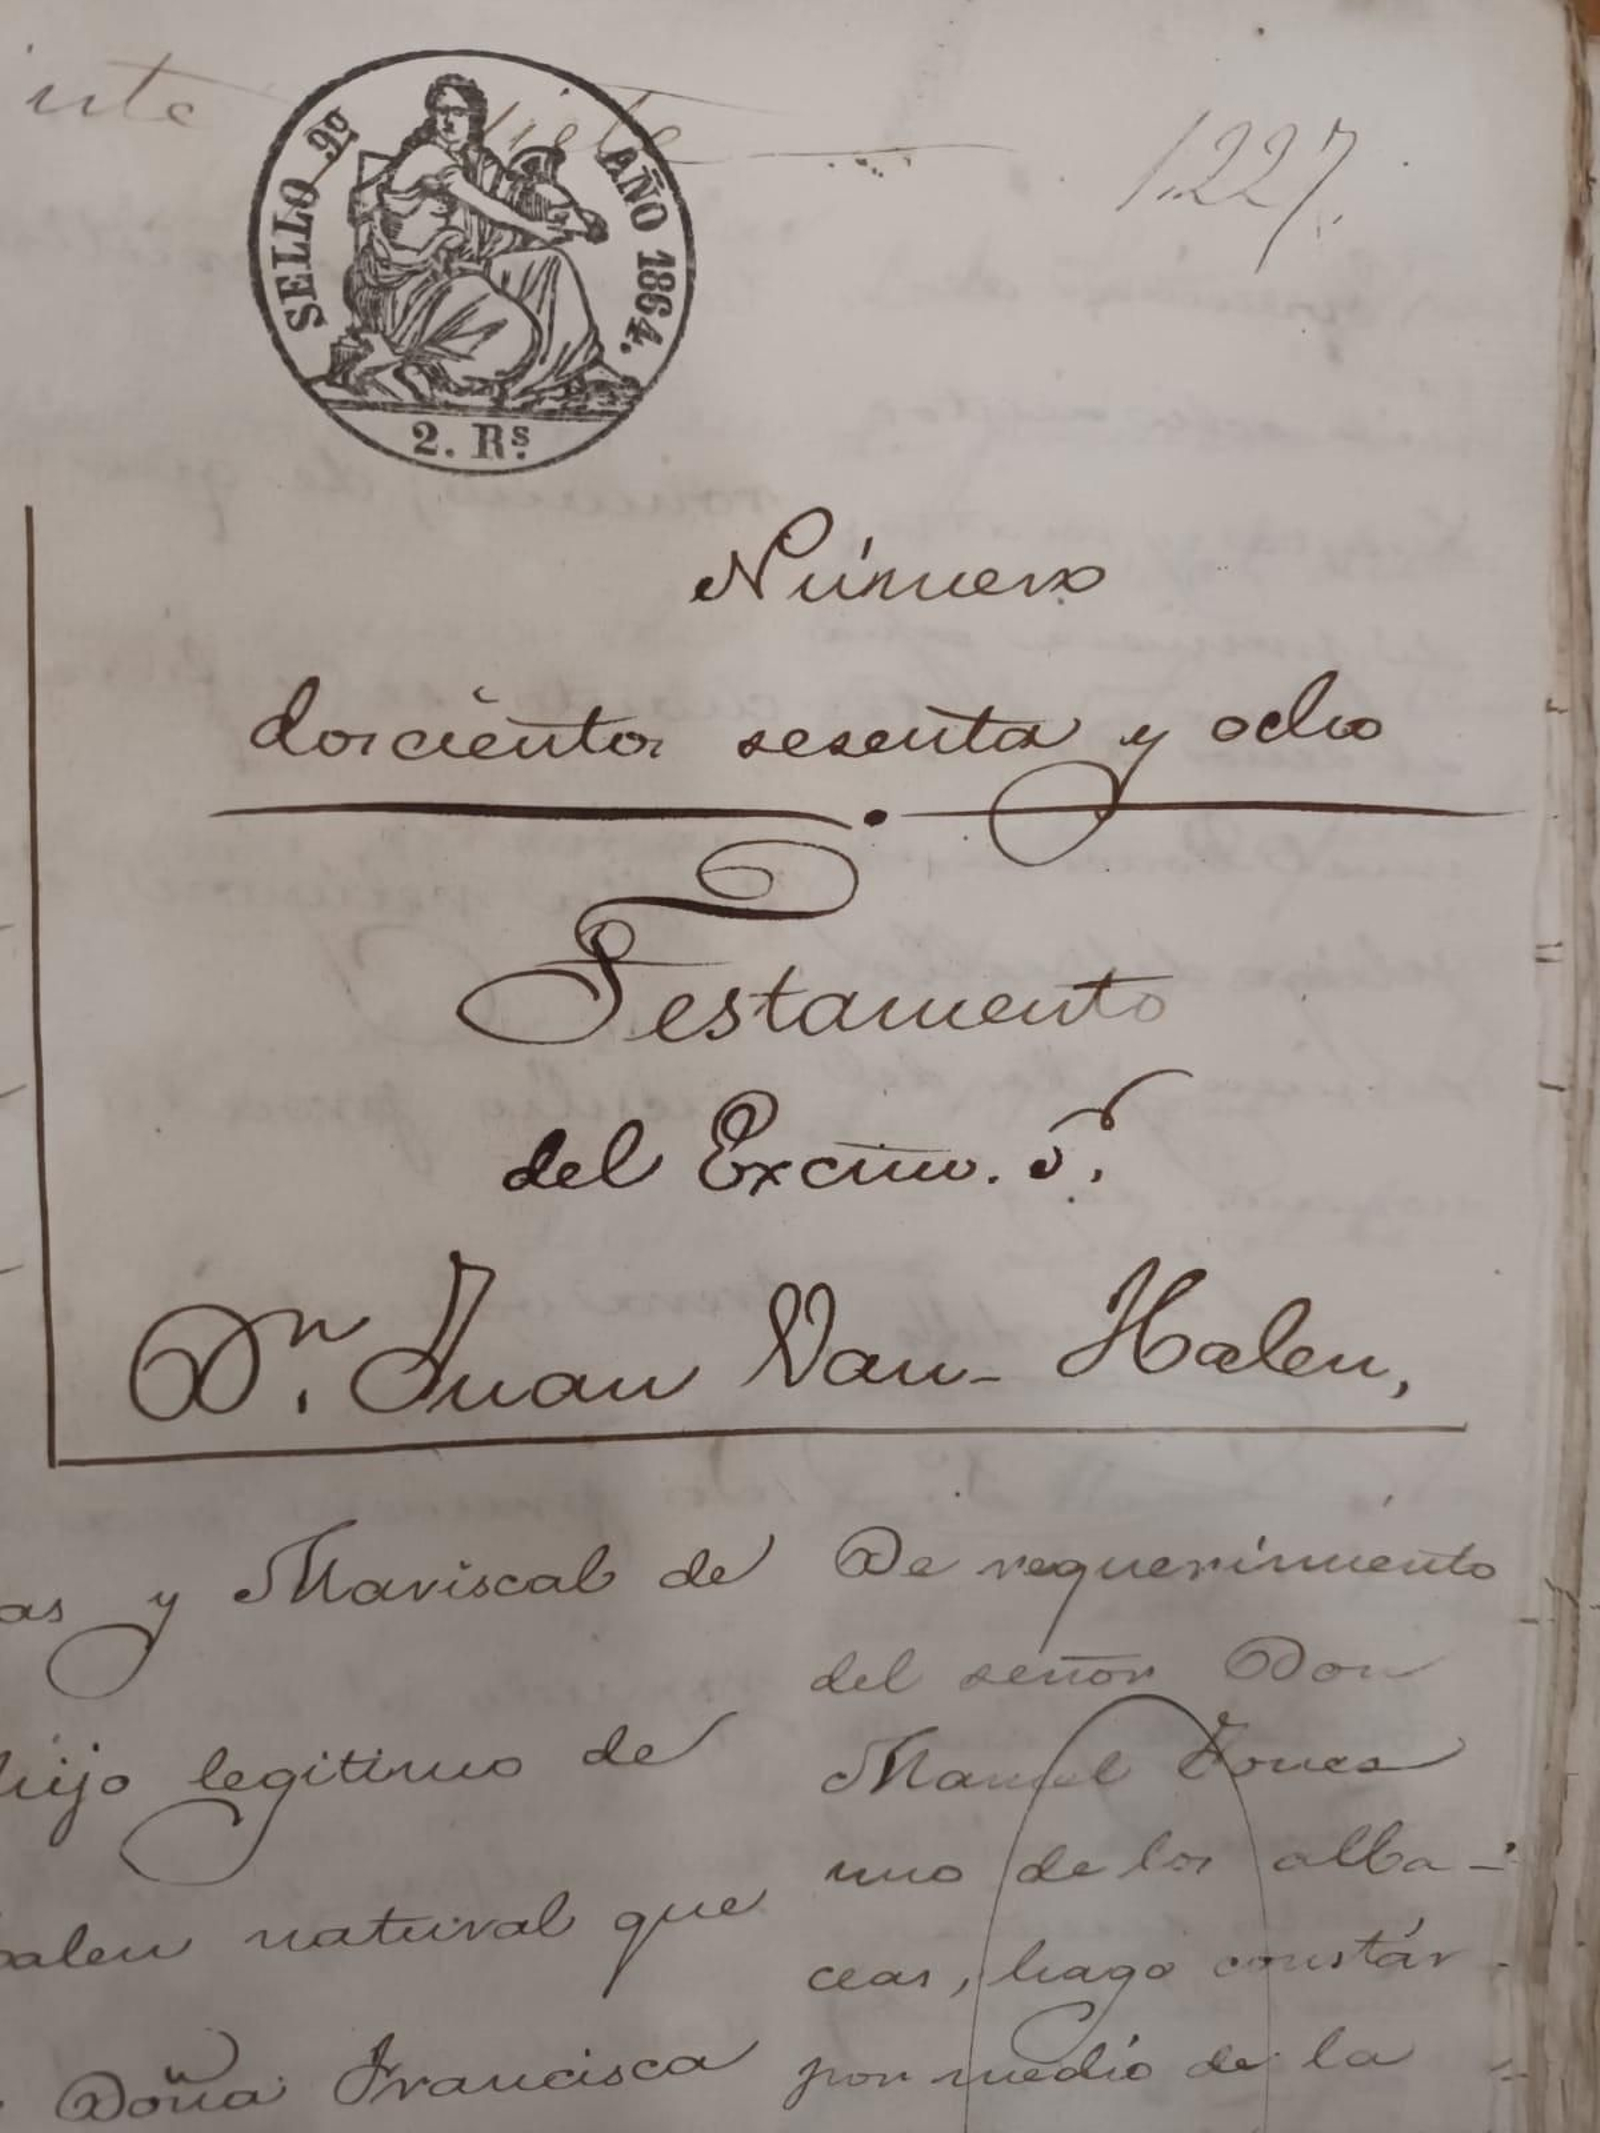 siete
1.227.
SELLO 9º AÑO 1864.
2. Rs.
Número
doscientos sesenta y ocho
Testamento
del Excmo. Sr.
Dn. Juan Van-Halen,
as y Mariscal de
hijo legitimo de
alen natural que
Doña Francisca
De requerimiento
del señor Don
Manuel
uno de los alba-
ceas, hago constár
por medio de la